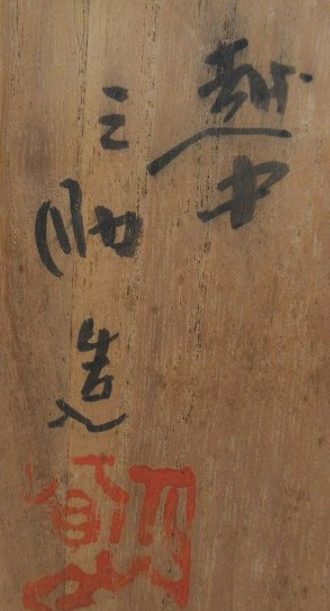 越中
三助造